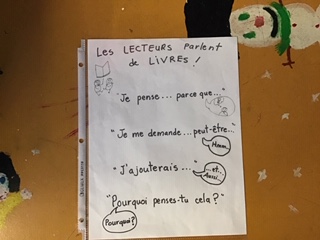 Les LECTEURS Parlent
de LIVRES !
"Je pense... parce que..."
"Je me demande... peut-être..."
Hmm..
"J'ajouterais...
...et..
Aussi..
"Pourquoi penses-tu cela?"
Pourquoi?